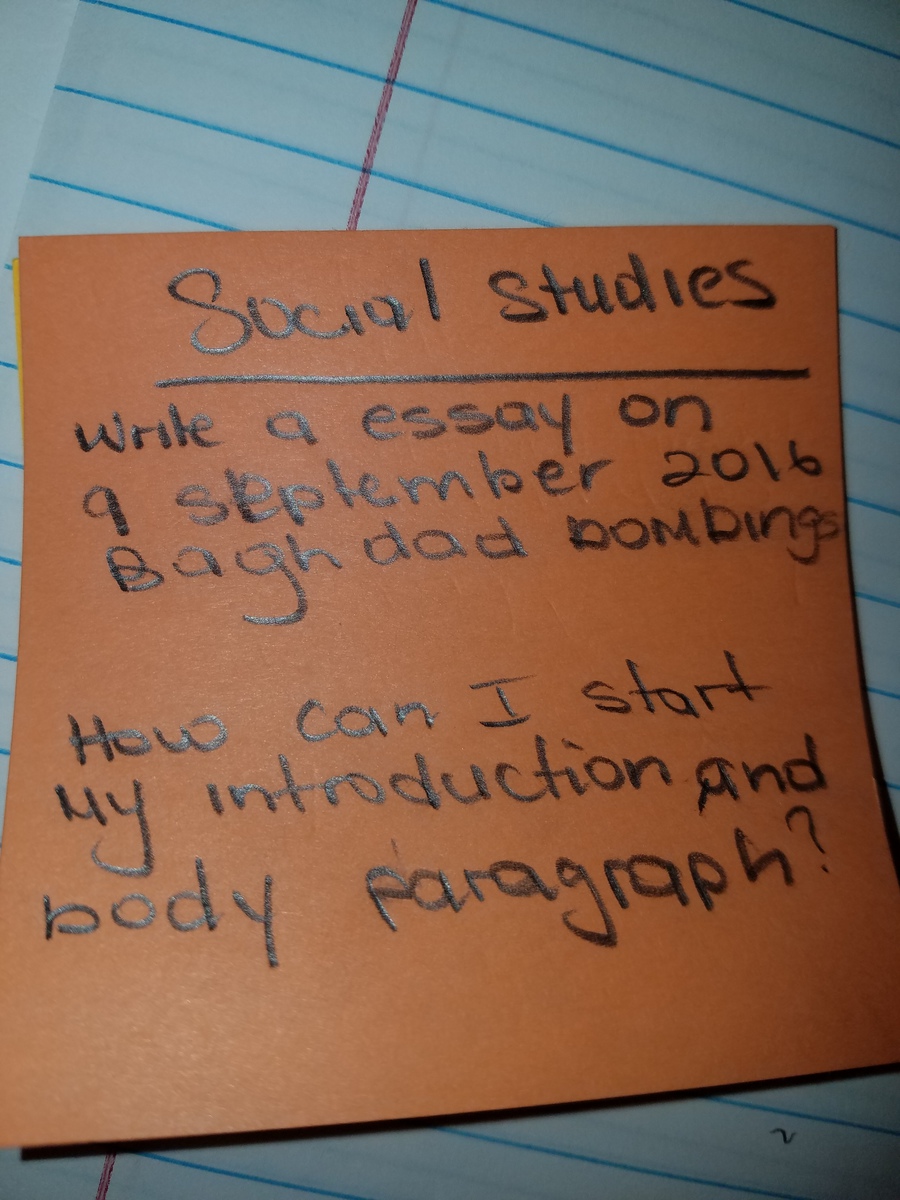 Social Studies
Write a essay on
9 september 2016
Baghdad bombings
How can I start
My introduction and
body paragraph?